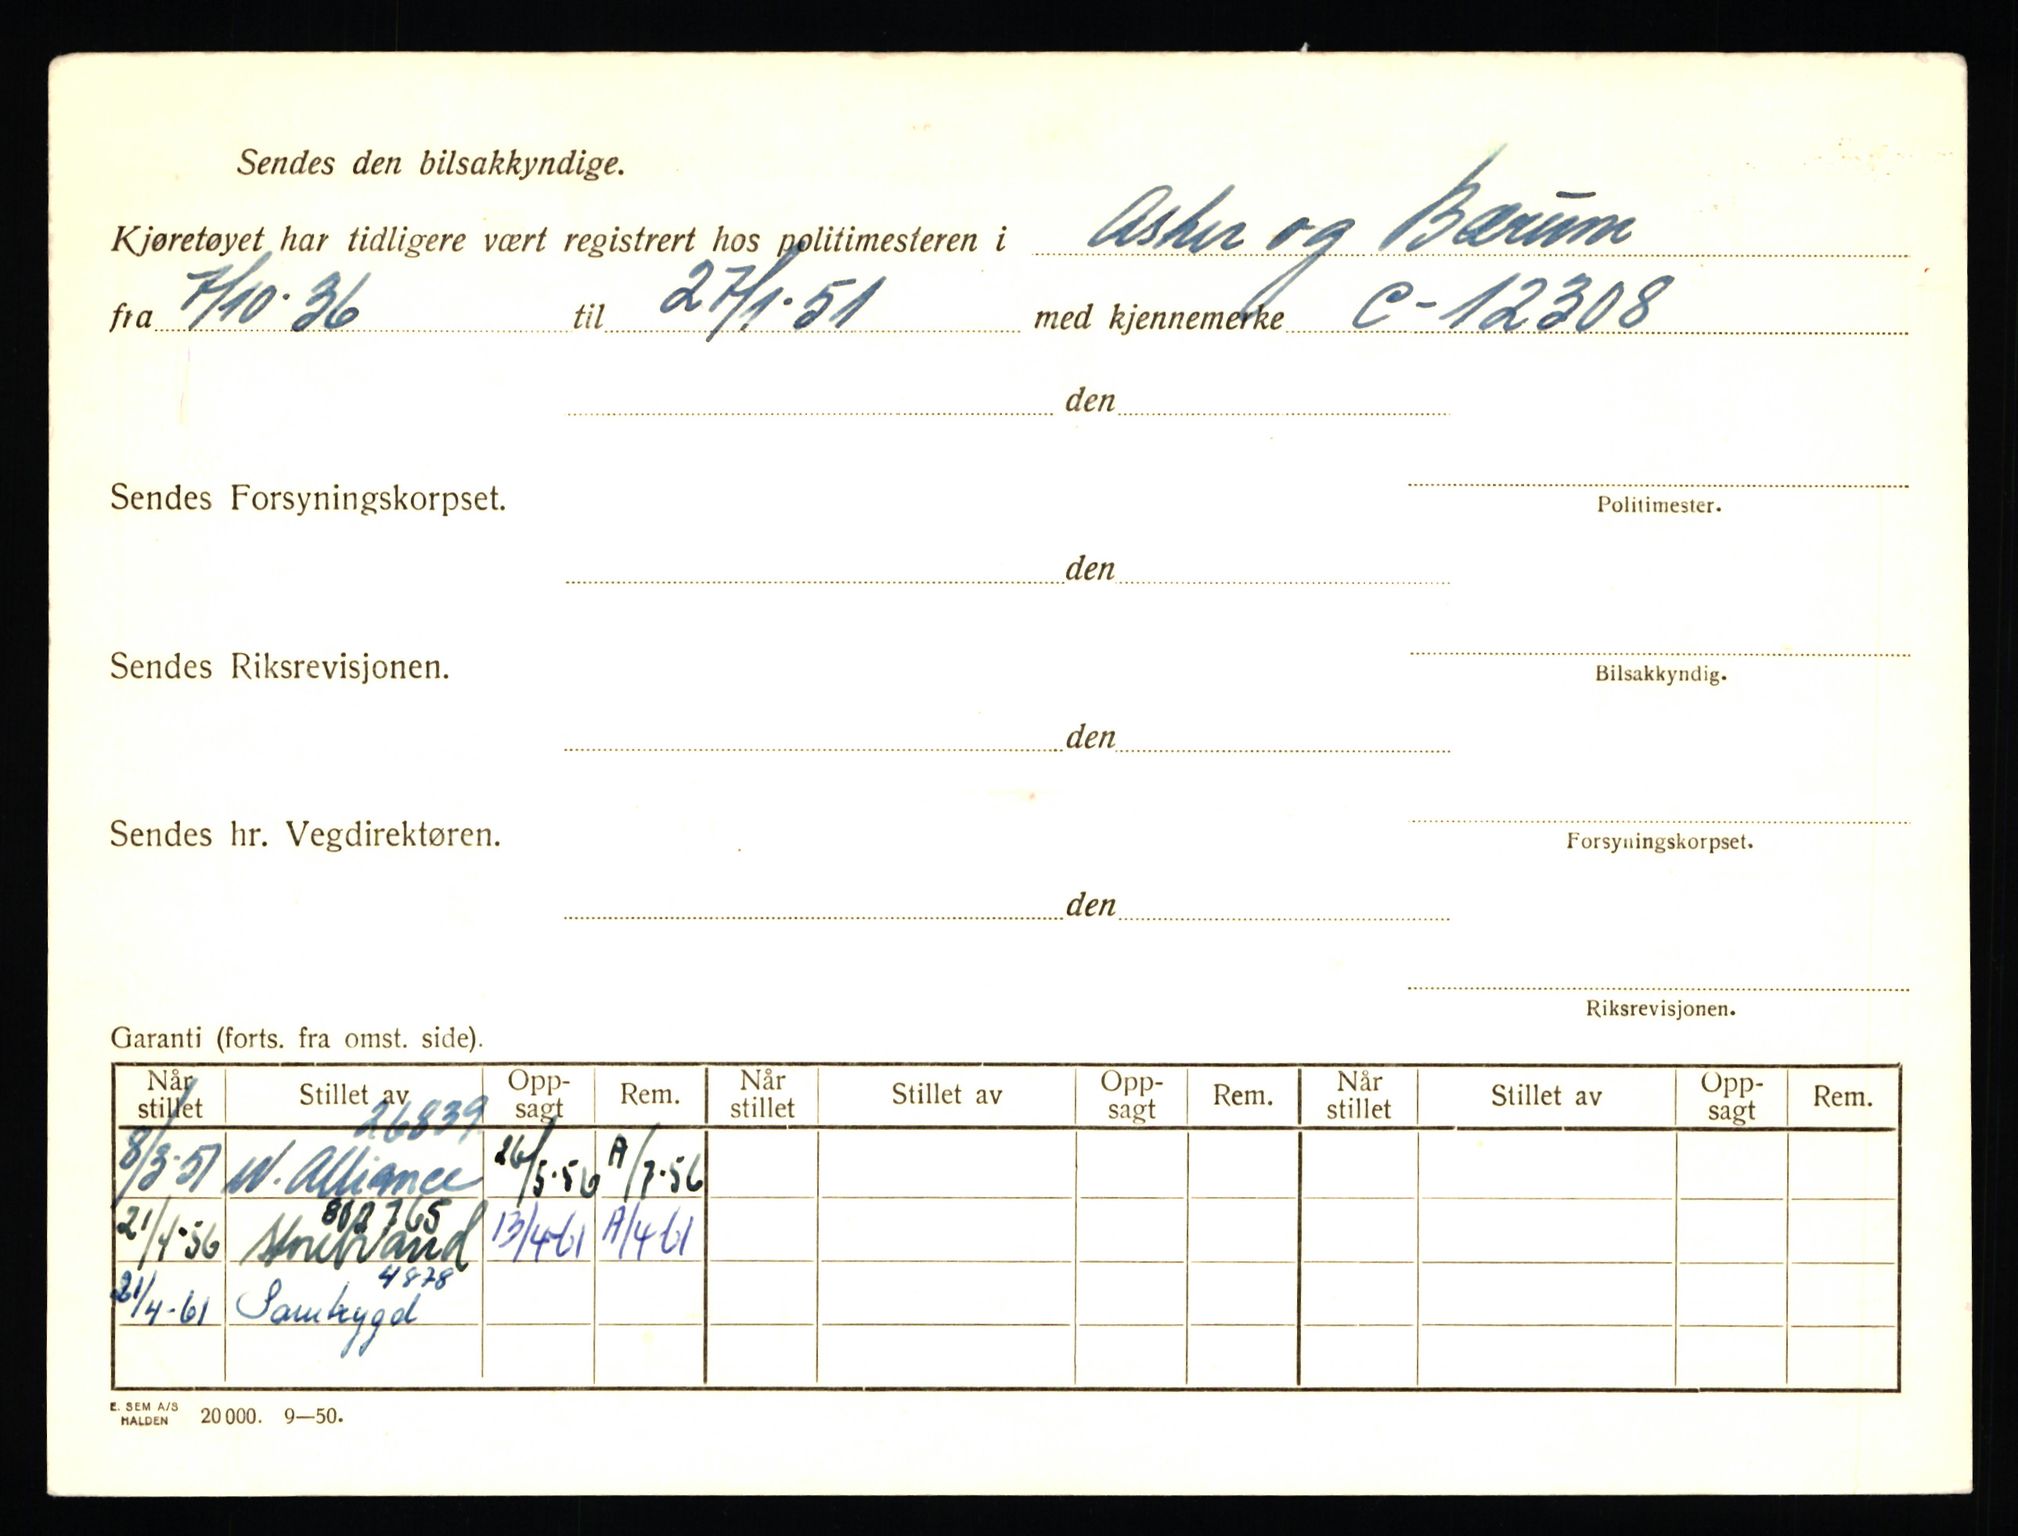 Sendes den bilsakkyndige.
Kjøretøyet har tidligere vært registrert hos politimesteren i Asker og Bærum
fra 7/10-36 til 27/1-51 med kjennemerke C-12308
den
Sendes Forsyningskorpset.
Politimester.
den
Sendes Riksrevisjonen.
Bilsakkyndig.
den
Sendes hr. Vegdirektøren.
Forsyningskorpset.
den
Riksrevisjonen.
Garanti (forts. fra omst. side).
Når stillet Stillet av Opp-sagt Rem. Når stillet Stillet av Opp-sagt Rem. Når stillet Stillet av Opp-sagt Rem.
26839
8/3-51 W. Alliance 26/5-56 A/7-56
802765
21/4-56 Storebrand 13/4-61 A/4-61
4878
21/4-61 Sambygd
E. SEM A/S
HALDEN 20 000. 9—50.